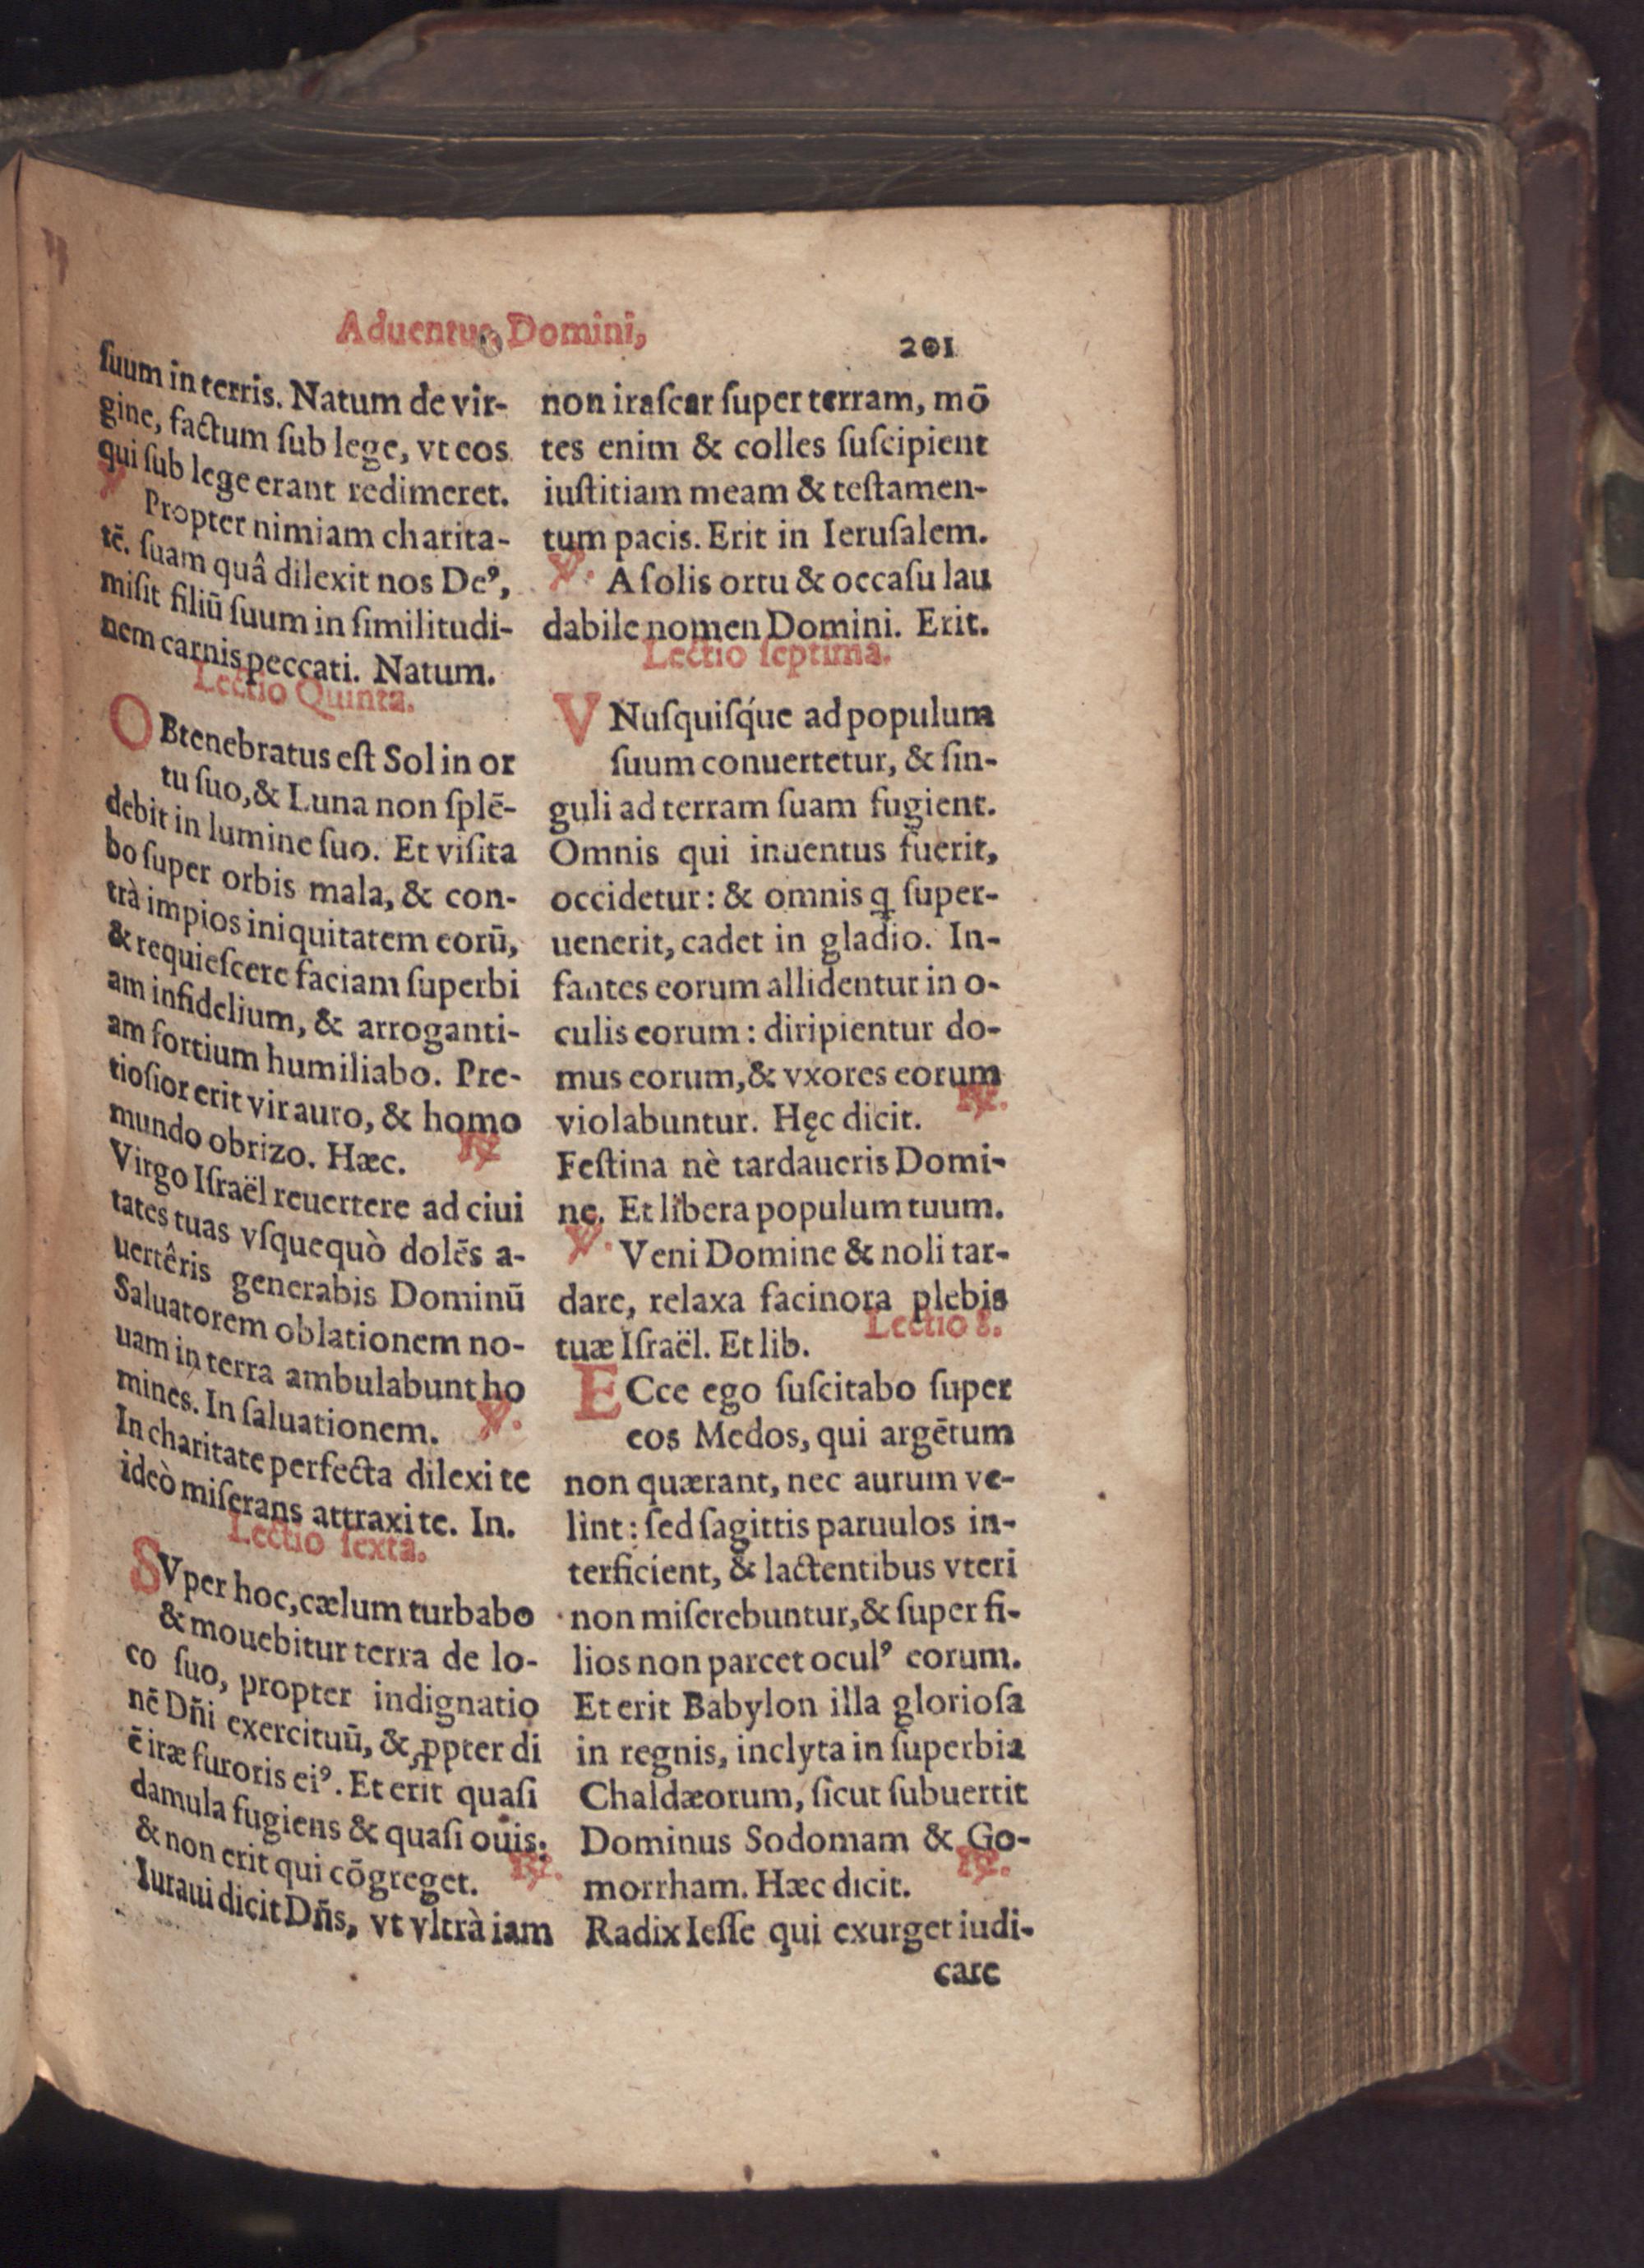 Aduentus Domini,
201
ſuum in terris. Natum de vir-
gine, factum ſub lege, vt eos
qui ſub lege erant redimeret.
℣
Propter nimiam charita-
tē. ſuam quâ dilexit nos Deꝰ,
miſit filiū ſuum in ſimilitudi-
nem carnis peccati. Natum.
Lectio Quinta.
OBtenebratus eſt Sol in or
tu ſuo, & Luna non ſplē-
debit in lumine ſuo. Et viſita
bo ſuper orbis mala, & con-
trà impios iniquitatem eorū,
& requieſcere faciam ſuperbi
am infidelium, & arroganti-
am fortium humiliabo. Pre-
tioſior erit vir auro, & homo
mundo obrizo. Hæc. ℟
Virgo Iſraël reuertere ad ciui
tates tuas vſquequò dolēs a-
uertêris generabis Dominū
Saluatorem oblationem no-
uam in terra ambulabunt ho
mines. In ſaluationem. ℣.
In charitate perfecta dilexi te
ideò miſerans attraxi te. In.
Lectio ſexta.
SVper hoc, cælum turbabo
& mouebitur terra de lo-
co ſuo, propter indignatio
nē Dn̄i exercituū, & ꝓpter di
ē iræ furoris eiꝰ. Et erit quaſi
damula fugiens & quaſi ouis:
& non erit qui cōgreget. ℟.
Iuraui dicit Dn̄s, vt vltrà iam
non iraſcar ſuper terram, mō
tes enim & colles ſuſcipient
iuſtitiam meam & teſtamen-
tum pacis. Erit in Ieruſalem.
℣. A ſolis ortu & occaſu lau
dabile nomen Domini. Erit.
Lectio ſeptima.
VNuſquiſq́ue ad populum
ſuum conuertetur, & ſin-
guli ad terram ſuam fugient.
Omnis qui inuentus fuerit,
occidetur: & omnis q ſuper-
uenerit, cadet in gladio. In-
fantes eorum allidentur in o-
culis eorum: diripientur do-
mus eorum, & vxores eorum
violabuntur. Hęc dicit. ℟.
Feſtina nè tardaueris Domi-
ne. Et libera populum tuum.
℣. Veni Domine & noli tar-
dare, relaxa facinora plebis
tuæ Iſraël. Et lib.
Lectio 8.
ECce ego ſuſcitabo ſuper
eos Medos, qui argētum
non quærant, nec aurum ve-
lint: ſed ſagittis paruulos in-
terficient, & lactentibus vteri
non miſerebuntur, & ſuper fi-
lios non parcet oculꝰ eorum.
Et erit Babylon illa glorioſa
in regnis, inclyta in ſuperbia
Chaldæorum, ſicut ſubuertit
Dominus Sodomam & Go-
morrham. Hæc dicit. ℟.
Radix Ieſſe qui exurget iudi-
care